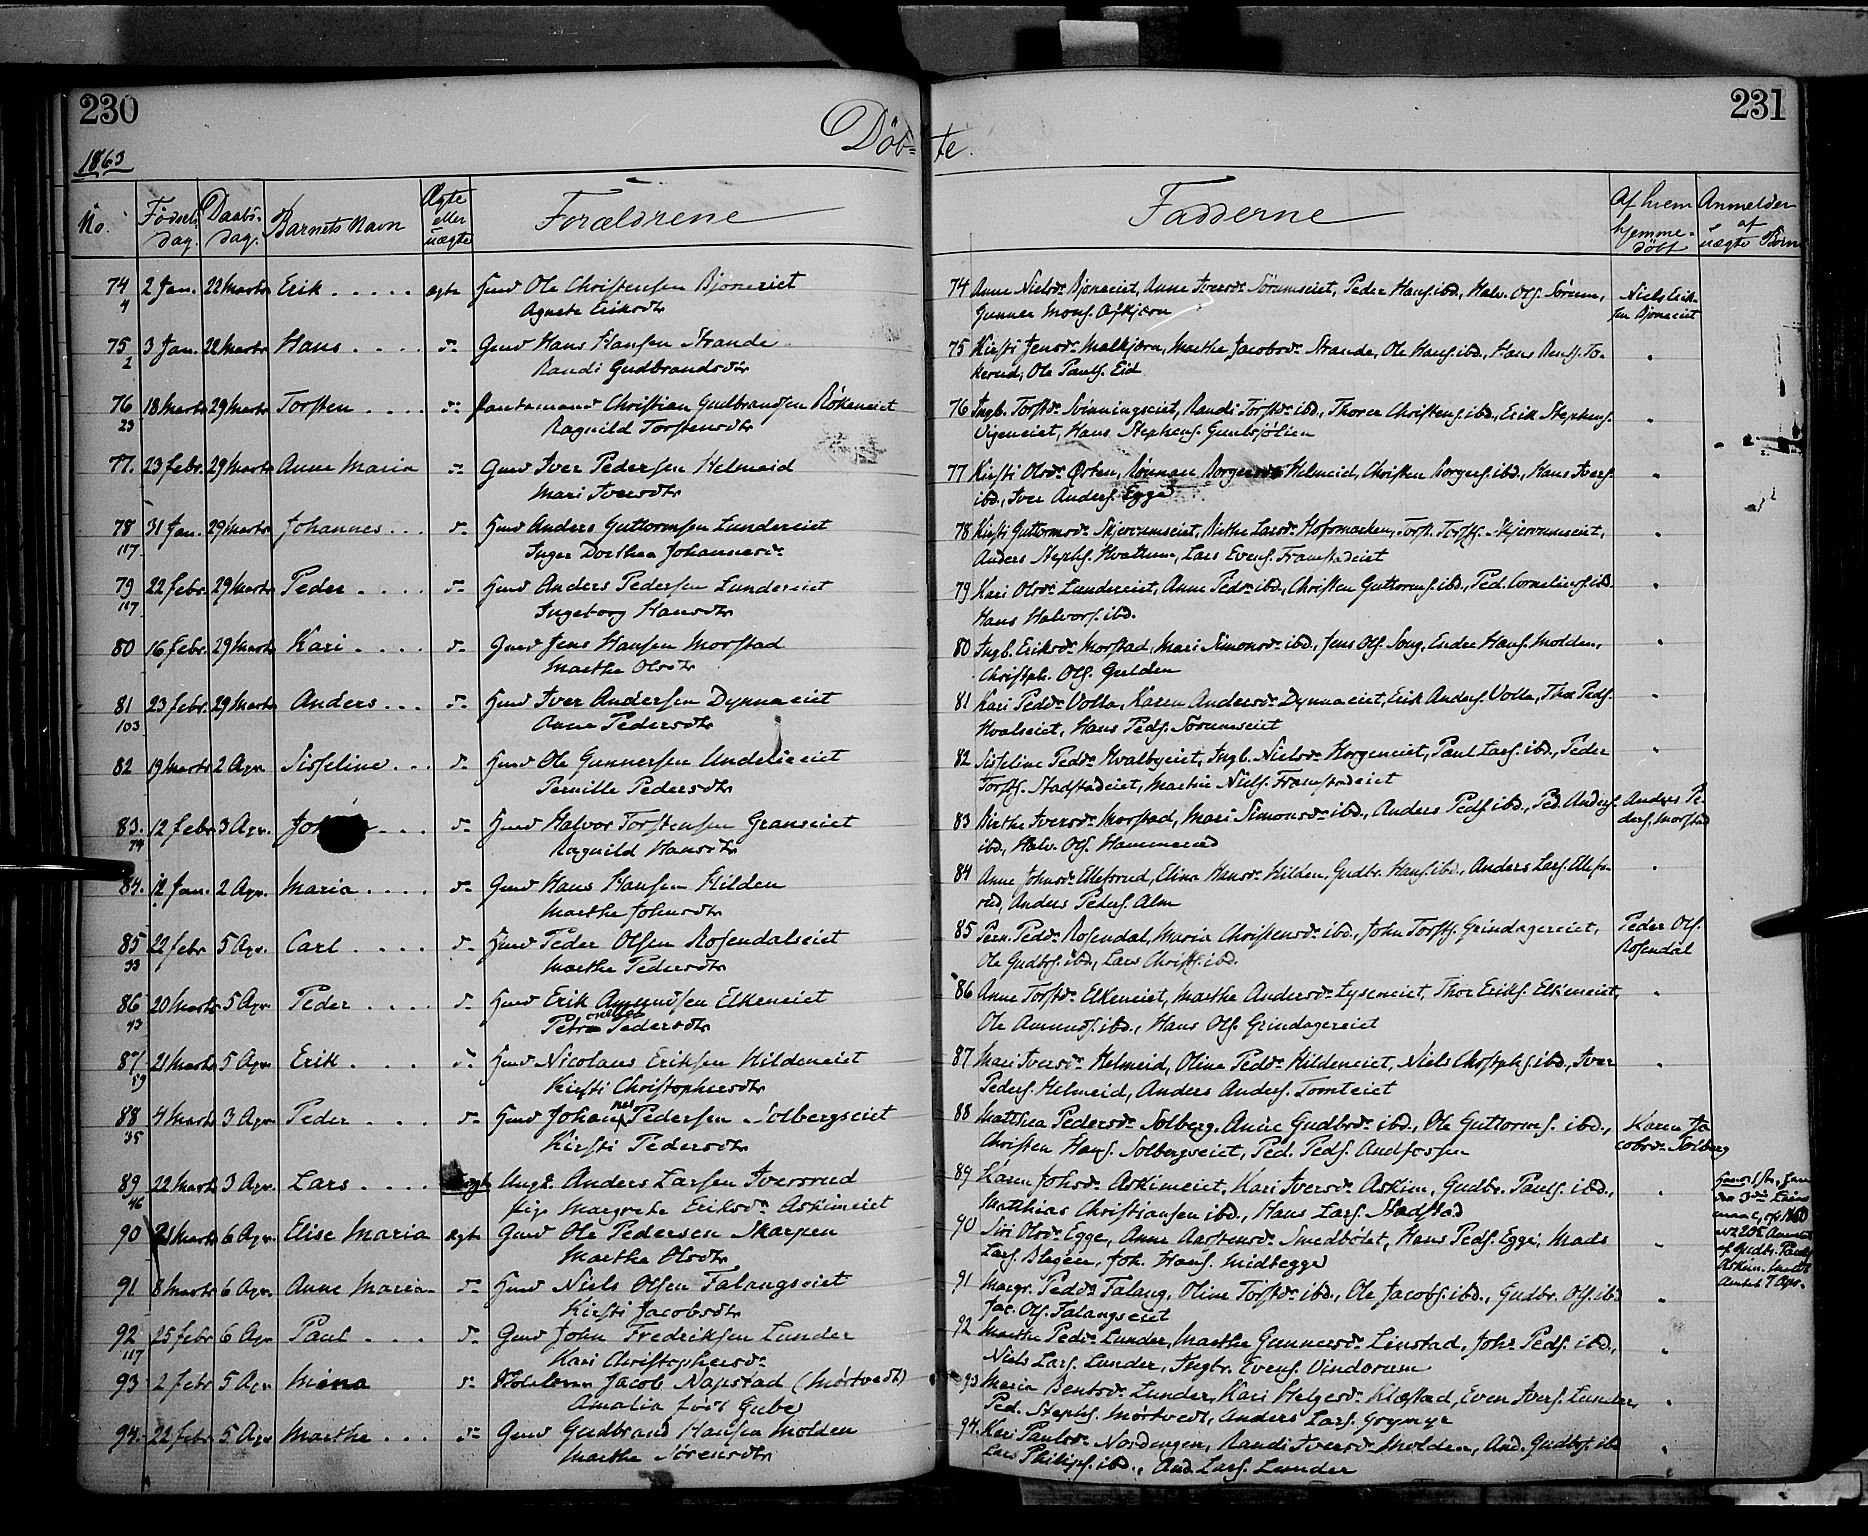 230
1863
Döb=
No.
Födsels dag.
Daabs-dag.
Barnets Navn
Ægte eller uægte
Forældrene
74 2 Jan. 22 Marts Erik ægte Huusm Ole Christensen Bjoneeiet
4 Agnete Eriksdtr
75 3 Jan. 22 Marts Hans do Gmd Hans Hansen Strande
2 Randi Gudbrandsdtr
76 18 Marts 29 Marts Torsten do Christian Gudbrandsen
23 Ragnild Torstensdtr
77. 23 febr. 29 Marts Anne Maria do Gmd Iver Pedersen Helmeid
Mari Iversdtr
78 31 Jan. 29 Marts Johannes do Hmd Anders Guttormsen Lundereiet
117 Inger Dorthea Johannesdr
79 22 febr. 29 Marts Peder do Hmd Anders Pedersen Lundereiet
117 Ingeborg Hansdtr
80 16 febr. 29 Marts Kari do Gmd Jens Hansen Morstad
Marthe Olsdtr
81 23 febr. 29 Marts Anders do Hmd Iver Andersen Dynnaeiet
103 Anne Pedersdtr
82 19 Marts 2 Apr. Sisseline do Hmd Ole Gunnersen
Pernille Pedersdtr
83. 12 febr 3 Apr. do Hmd Halvor Torstensen Graneeiet
74 Ragnild Hansdtr
84. 12 Jan. 2 Apr. Maria do Gmd Hans Hansen Hilden
Marthe Johnsdtr
85 22 febr 5 Apr. Carl do Hmd Peder Olsen Rosendalseiet
33 Marthe Pedersdtr
86 20 Marts 5 Apr. Peder do Hmd Erik Amundsen Elkeneiet
43 Petronelle Pedersdtr
87 21 Marts 5 Apr Erik do Hmd Nicolaus Eriksen Hildeneiet
89 Kirsti Christophersdtr
88 4 Marts 3 Apr. Peder do Hmd Johannes Pedersen Solbergseiet
35 Kirsti Pedersdtr
89 22 Marts 3 Apr. Lars Ungk. Anders Larsen Iversrud
46 Pige Margrethe Eriksdr Askimeiet
90 21 Marts 6 Apr. Elise Maria ægte Gmd Ole Pedersen Skarpen
Marthe Olsdtr
91 8 Marts 6 Apr. Anne Maria do Hmd Niels Olsen Falangseiet
Kirsti Jacobsdtr
92 25 febr 6 Apr Paul do Gmd John Fredriksen Lunder
117 Kari Christophersdr
93 2 febr 5 Apr Mina do Jacob Napstad (Mörtvedt)
Amalia född Gube
94. 22 febr 5 Apr Marthe do Gmd Gudbrand Hansen Molden
Marthe Sörensdtr
231
te.
Fadderne
Af hvem hjemme-döbt
Anmelder af uægte Börn
74 Anne Nielsdr Bjoneeiet, Anne Iversdr Sörumseiet, Peder Hans. ibd., Halv. Ols. Sörum,
Gunner Mons. Niels Erik-
sen Bjoneeiet
75 Kirsti Jensdr Marthe Jacobsdr Strande, Ole Hans. ibd., Hans
Ole Pauls. Eid
76 Ingb. Torstdr Svinningseiet, Randi Torstdr ibd., Thorer Christens. ibd., Erik Stephens.
Vigeneiet, Hans Stephens.
77 Kirsti Olsdr Helmeid, Christen Borgers. ibd., Hans Ivers.
ibd., Iver Anders. Egge
78 Kirsti Guttormsdr Skjervumseiet, Birthe Larsdr Hofsmarken, Torst. Torsts. Skjervumseiet,
Anders Stephs. Hvattum, Lars Evens. Framstadeiet
79 Kari Olsdr Lundereiet, Anne Pedsdr ibd., Christen Guttorms. ibd., Ped. Cornelius. ibd
Hans Halvors. ibd.
80 Ingb. Eriksdr Morstad, Mari Simonsdr ibd., Jens Ols. Endre Hans. Molden,
Christoph. Ols. Gulden
81 Kari Pedsdr Volla, Karen Andersdr Dynnaeiet, Erik Anders. Volla, Thor Peds.
Hvalseiet, Hans Peds. Sörumseiet
82 Sisseline Pedsdr Hvalbyeiet, Ingb. Nielsdr Horgeneiet, Paul Lars. ibd., Peder
Torsts. Stadstadeiet, Martin Niels. Framstadeiet
83 Birthe Iversdr Morstad, Mari Simonsdr ibd., Anders Peds. ibd., Ped. Anders.
ibd., Halv. Ols. Anders Pe-
ders. Morstad
84 Anne Johnsdr Ellefsrud, Elina Hansdr Hilden, Gudbr. Hans. ibd., Anders Lars. Ellefs-
rud, Anders Peders. Alm
85 Pern. Pedsdr Rosendal, Maria Christensdr ibd., John Torsts. Grindagereiet,
Ole Gudbrs. ibd., Lars Christs. ibd. Peder Ols.
Rosendal
86 Anne Torstdr Elkeneiet, Marthe Andersdr Lyseneiet, Thor Eriks. Elkeneiet,
Ole Amunds. ibd., Hans Ols. Grindagereiet
87 Mari Iversdr Helmeid, Oline Pedsdr Hildeneiet, Niels Christophs. ibd., Iver
Peders. Helmeid, Anders Anders. Tomteiet
88 Matthea Pedersdr Solberg, Anne Gudbrdr ibd., Ole Guttorms. ibd.,
Christen Hans. Solbergseiet, Ped. Peds. Karen Ja-
cobsdr Solberg
89 Karen Johsdr Askimeiet, Kari Iversdr Askim, Gudbr. Pauls. ibd.,
Matthias Christiansen ibd., Hans Lars. Stadstad
90 Siri Olsdr Egge, Anne Aastensdr Smedbölet, Hans Peds. Egge, Mads
Lars. Joh. Hans. Midtegge
91 Margr. Pedsdr Falang, Oline Torstdr ibd., Ole Jacobs. ibd., Gudbr. Ols. ibd
Jac. Ols. Falangseiet
92 Marthe Pedsdr Lunder, Marthe Gunnersdr Linstad, Johs Peds. ibd.,
Niels Lars. Lunder, Ingbr. Evens. Vindorum
93 Maria Bentsdr Lunder, Kari Helgesdr Klæstad, Even Ivers. Lunder,
Ped. Stephs. Mörtvedt, Anders Lars. Grymyr
94. Kari Paulsdr Nordengen, Randi Iversdr Molden, And. Gudbrs. ibd
Lars Philips. ibd., And. Lars. Lunder